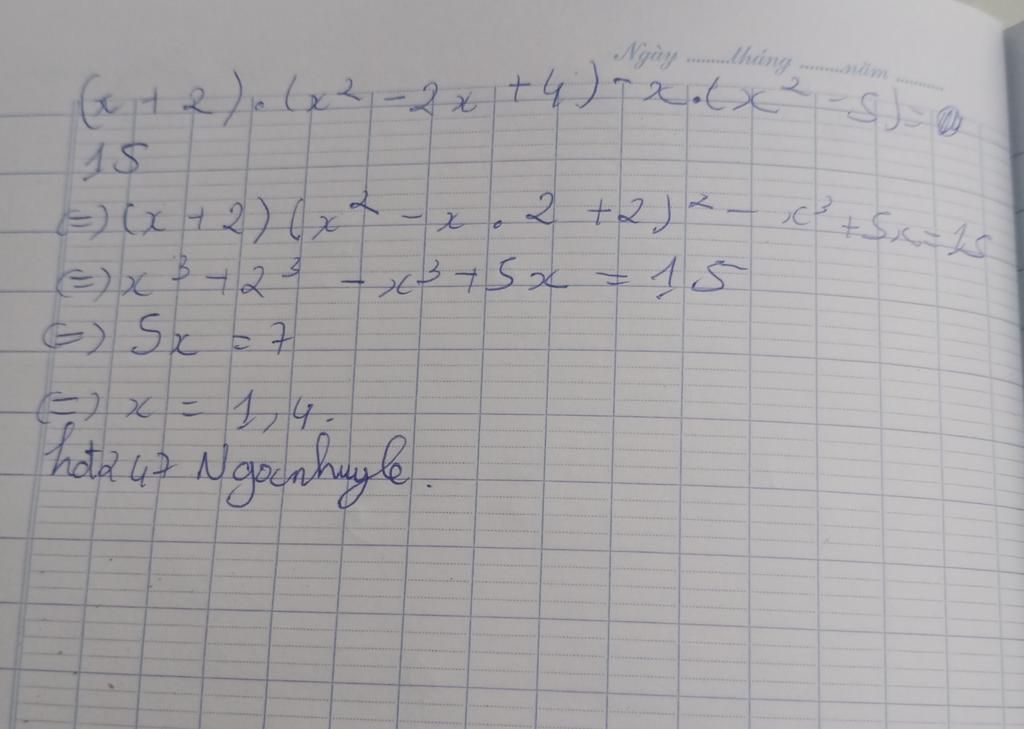 Ngày ........tháng ........năm ........
(x + 2).(x² - 2x + 4) - x.(x² - 5) =
15
(=) (x + 2)(x² - x . 2 + 2)² - x³ + 5x = 15
(=) x³ + 2³ - x³ + 5x = 15
(=) 5x = 7
(=) x = 1,4.
hot247 Ngocnhuyle.